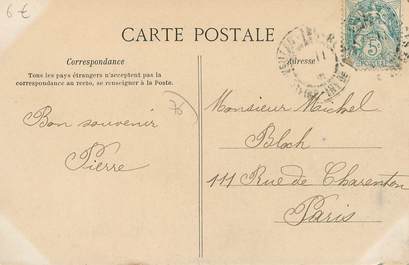 6 €
CARTE POSTALE
Correspondance
Adresse
Tous les pays étrangers n'acceptent pas la
correspondance au recto, se renseigner à la Poste.
Bon souvenir
Pierre
Monsieur Michel
Bloch
111 Rue de Charenton
Paris